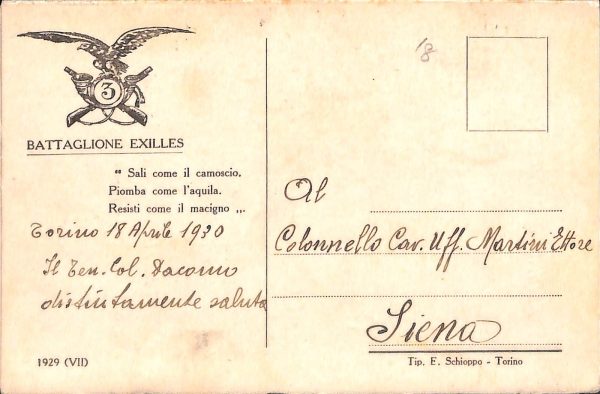 3
BATTAGLIONE EXILLES
“ Sali come il camoscio.
Piomba come l'aquila.
Resisti come il macigno „.
Torino 18 Aprile 1930
Il Ten. Col. Dacomo
distintamente saluta
1929 (VII)
18
Al
Colonnello Cav. Uff. Martini Ettore
Siena
Tip. E. Schioppo - Torino